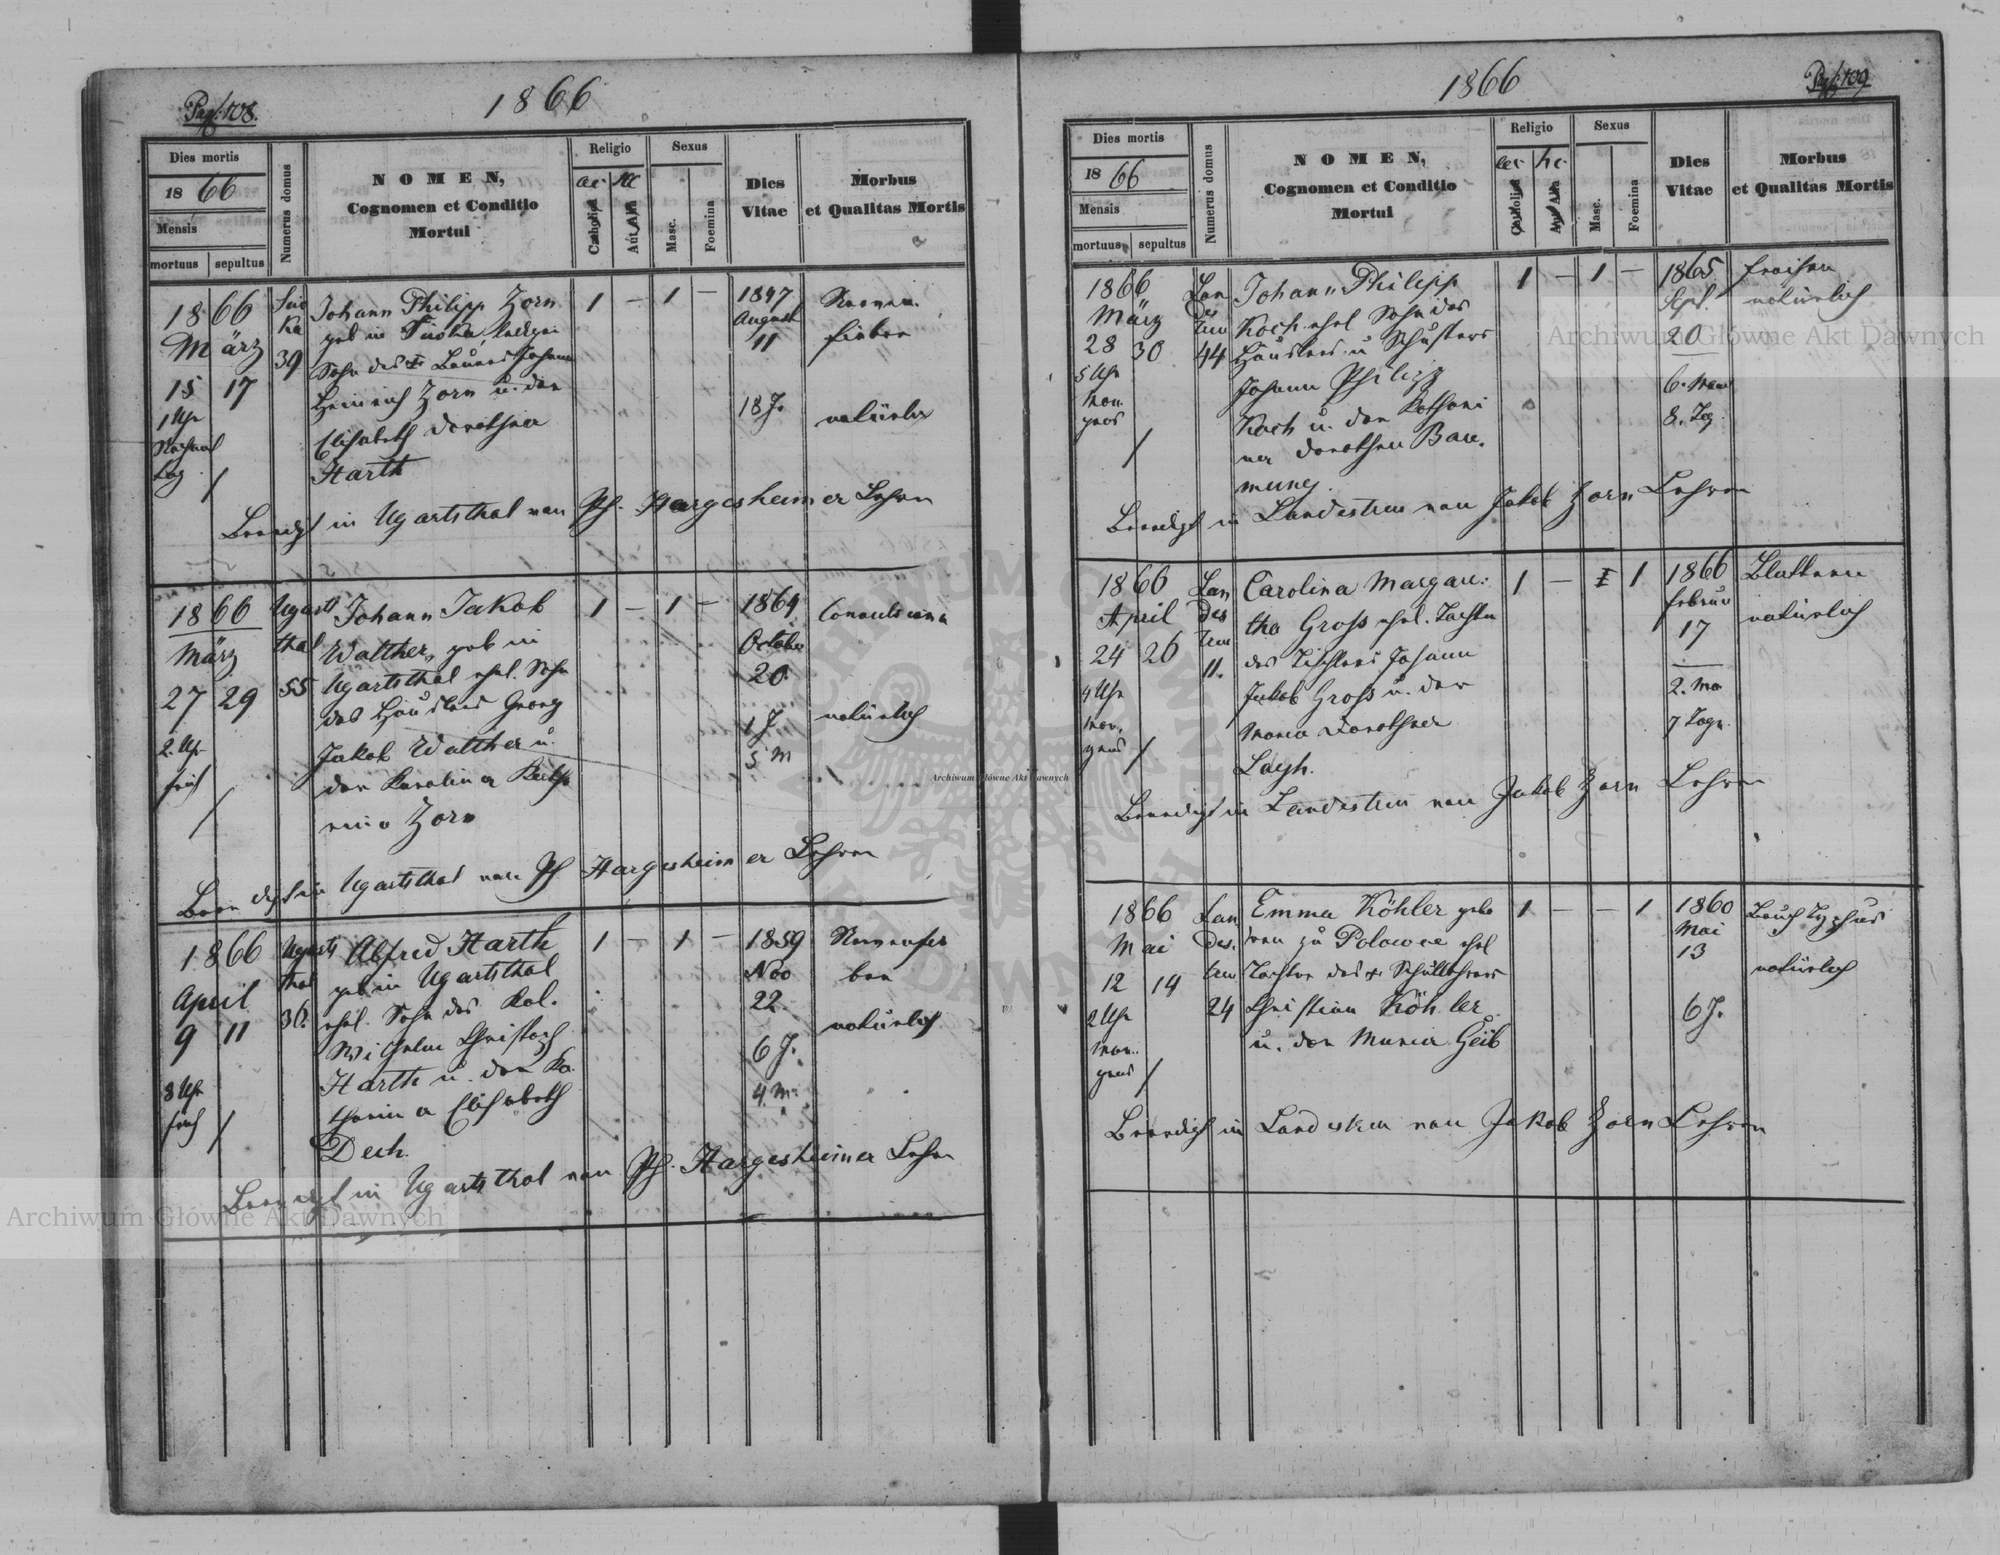 Pag. 108.
1866
Dies mortis
18 66
Mensis
mortuus sepultus
Numerus domus
NOMEN,
Cognomen et Conditio
Mortui
Religio
ac hc
Catholica
Aut Alia
Sexus
Masc.
Foemina
Dies
Vitae
Morbus
et Qualitas Mortis
1866
März
15 17
1 Uhr
Nachmit
tag
39
Johann Philipp Zorn
geb in lediger
Sohn des + Bauers Johann
Heinrich Zorn u. der
Elisabeth Dorothea
Harth
1 – 1 –
1847
August
11
18 J.
Nerven
fieber
natürlich
Beerdigt in Ugartsthal von Ph. Hargesheimer Lehrer
1866
März
27 29
2. Uhr
früh
Ugarts
thal
55
Johann Jakob
Walther, geb in
Ugartsthal ehel. Sohn
des Häuslers Georg
Jakob Walther u.
der Karolina Katha
rina Zorn
1 – 1 –
1864
October
20
1 J
5 M
natürlich
Beerdigt in Ugartsthal von Ph Hargesheimer Lehrer
1866
April
9 11
8 Uhr
früh
Ugarts
thal
36.
Alfred Harth
geb in Ugartsthal
ehel. Sohn des Kol.
Wilhelm Christoph
Harth u. der Ka
tharina Elisabeth
Dech.
1 – 1 –
1859
Nov
22
6 J.
4 M.
Nervenfie
ber
natürlich
Beerdigt in Ugartsthal von Ph. Hargesheimer Lehrer
Pag. 109
1866
Dies mortis
18 66
Mensis
mortuus sepultus
Numerus domus
NOMEN,
Cognomen et Conditio
Mortui
Religio
ac hc
Catholica
Aut Alia
Sexus
Masc.
Foemina
Dies
Vitae
Morbus
et Qualitas Mortis
1866
März
28 30
5 Uhr
Mor
gens
Lan
des
treu
44
Johann Philipp
Koch ehel Sohn des
Häuslers u Schusters
Johann Philipp
Koch u. der Kathari
na Dorothea Bau
mung.
1 – 1 –
1865
Sept.
20
6. Mon
8. Tag
Fraisen
natürlich
Beerdigt in Landestreu von Jakob Zorn Lehrer
1866
April
24 26
4 Uhr
Mor.
gens
Lan
des
treu
11.
Carolina Margare:
tha Gross ehel. Tochter
des Tischlers Johann
Jakob Gross u. der
Maria Dorothea
1 – 1 1
1866
Februar
17
2. Mo
7 Tage.
Blattern
natürlich
Beerdigt in Landestreu von Jakob Zorn Lehrer
1866
Mai
12 14
2 Uhr
Mor.
gens
Lan
des.
treu
24
Emma Köhler gebo
ren zu Polowce ehel
Tochter des + Schullehrers
Christian Köhler
u. der Maria Geib
1 – – 1
1860
Mai
13
6 J.
Bauch Typhus
natürlich
Beerdigt in Landestreu von Jakob Zorn Lehrer
Archiwum Główne Akt Dawnych
Archiwum Główne Akt Dawnych
Archiwum Główne Akt Dawnych